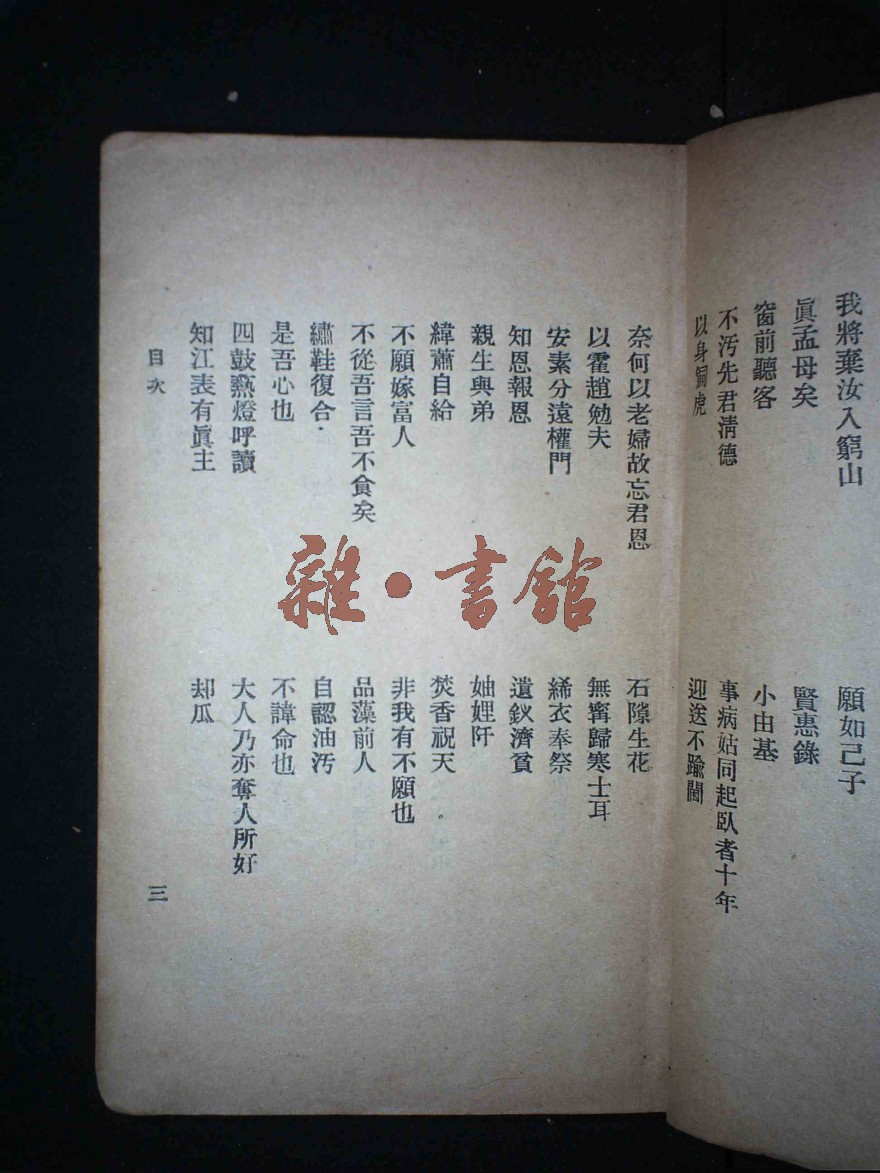 我將棄汝入窮山
願如己子
眞孟母矣
賢惠錄
窗前聽客
小由基
不汚先君淸德
事病姑同起臥者十年
以身飼虎
迎送不踰閫
奈何以老婦故忘君恩
石隙生花
以霍趙勉夫
無甯歸寒士耳
安素分遠權門
絺衣奉祭
知恩報恩
遺釵濟貧
親生與弟
妯娌阡
緯蕭自給
焚香祝天
不願嫁富人
非我有不願也
不從吾言吾不食矣
品藻前人
繡鞋復合
自認油汚
是吾心也
不諱命也
四鼓爇燈呼讀
大人乃亦奪人所好
知江表有眞主
却瓜
目次
三
雜·書館